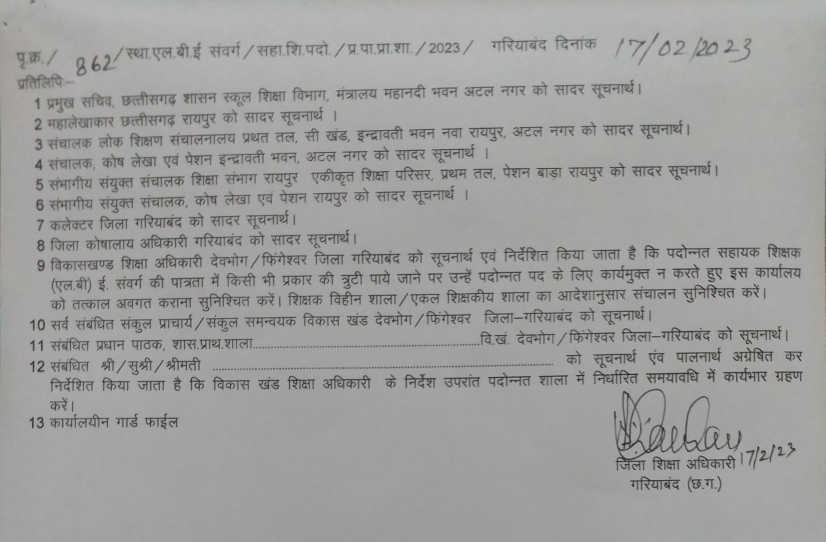 पृ.क्र./ 862/स्था.एल.बी.ई संवर्ग/सहा.शि.पदो./प्र.पा.प्रा.शा./2023/ गरियाबंद दिनांक 17/02/2023
प्रतिलिपिः–
1 प्रमुख सचिव, छत्तीसगढ़ शासन स्कूल शिक्षा विभाग, मंत्रालय महानदी भवन अटल नगर को सादर सूचनार्थ।
2 महालेखाकार छत्तीसगढ़ रायपुर को सादर सूचनार्थ ।
3 संचालक लोक शिक्षण संचालनालय प्रथत तल, सी खंड, इन्द्रावती भवन नवा रायपुर, अटल नगर को सादर सूचनार्थ।
4 संचालक, कोष लेखा एवं पेशन इन्द्रावती भवन, अटल नगर को सादर सूचनार्थ ।
5 संभागीय संयुक्त संचालक शिक्षा संभाग रायपुर एकीकृत शिक्षा परिसर, प्रथम तल, पेशन बाड़ा रायपुर को सादर सूचनार्थ।
6 संभागीय संयुक्त संचालक, कोष लेखा एवं पेशन रायपुर को सादर सूचनार्थ ।
7 कलेक्टर जिला गरियाबंद को सादर सूचनार्थ।
8 जिला कोषालाय अधिकारी गरियाबंद को सादर सूचनार्थ।
9 विकासखण्ड शिक्षा अधिकारी देवभोग/फिंगेश्वर जिला गरियाबंद को सूचनार्थ एवं निर्देशित किया जाता है कि पदोन्नत सहायक शिक्षक
(एल.बी) ई. संवर्ग की पात्रता में किसी भी प्रकार की त्रुटी पाये जाने पर उन्हें पदोन्नत पद के लिए कार्यमुक्त न करते हुए इस कार्यालय
को तत्काल अवगत कराना सुनिश्चित करें। शिक्षक विहीन शाला/एकल शिक्षकीय शाला का आदेशानुसार संचालन सुनिश्चित करें।
10 सर्व संबंधित संकुल प्राचार्य/संकुल समन्वयक विकास खंड देवभोग/फिंगेश्वर जिला–गरियाबंद को सूचनार्थ।
11 संबंधित प्रधान पाठक, शास.प्राथ.शाला..........................................................वि.खं. देवभोग/फिंगेश्वर जिला–गरियाबंद को सूचनार्थ।
12 संबंधित श्री/सुश्री/श्रीमती .......................................................................................... को सूचनार्थ एंव पालनार्थ अग्रेषित कर
निर्देशित किया जाता है कि विकास खंड शिक्षा अधिकारी के निर्देश उपरांत पदोन्नत शाला में निर्धारित समयावधि में कार्यभार ग्रहण
करें।
13 कार्यालयीन गार्ड फाईल
जिला शिक्षा अधिकारी 17/2/23
गरियाबंद (छ.ग.)